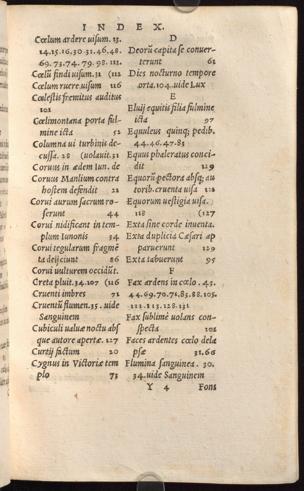 INDEX.
Cœlum ardere uisum. 13.
14.15.16.30.31.46.48.
69.73.74.79.98.111.
Cœlũ findi uisum.31 (112
Cœlum ruere uisum 116
Cœlestis fremitus auditus
101
Cœlimontana porta ful-
mine icta 52
Columna ui turbinis de-
cussa. 28 (uolauit.31
Coruus in ædem Iun. de
Coruus Manlium contra
hostem defendit 22
Corui aurum sacrum ro-
serunt 44
Corui nidificant in tem-
plum Iunonis 34
Corui tegularum fragmẽ
ta deijciunt 86
Corui uulturem occidũt.
Creta pluit.34.107 (116
Cruenti imbres 71
Cruentũ flumen.35. uide
Sanguinem
Cubiculi ualuæ noctu abs
que autore apertæ. 127
Curtij factum 20
Cygnus in Victoriæ tem
plo 73
D
Deorũ capita se conuer-
terunt 61
Dies nocturno tempore
orta.104. uide Lux
E
Eluij equitis filia fulmine
icta 97
Equuleus quinq; pedib.
44.46.47.85
Equus phaleratus conci-
dit 129
Equorũ pectora absq; au
torib. cruenta uisa 121
Equorum uestigia uisa.
118 (127
Exta sine corde inuenta.
Exta duplicia Cæsari ap
paruerunt 129
Exta tabuerunt 95
F
Fax ardens in cœlo. 43.
44.69.70.71.85.88.105.
111.113.128.131
Fax sublimè uolans con-
specta 102
Faces ardentes cœlo dela
psæ 31.66
Flumina sanguinea. 30.
34. uide Sanguinem
Y 4 Fons